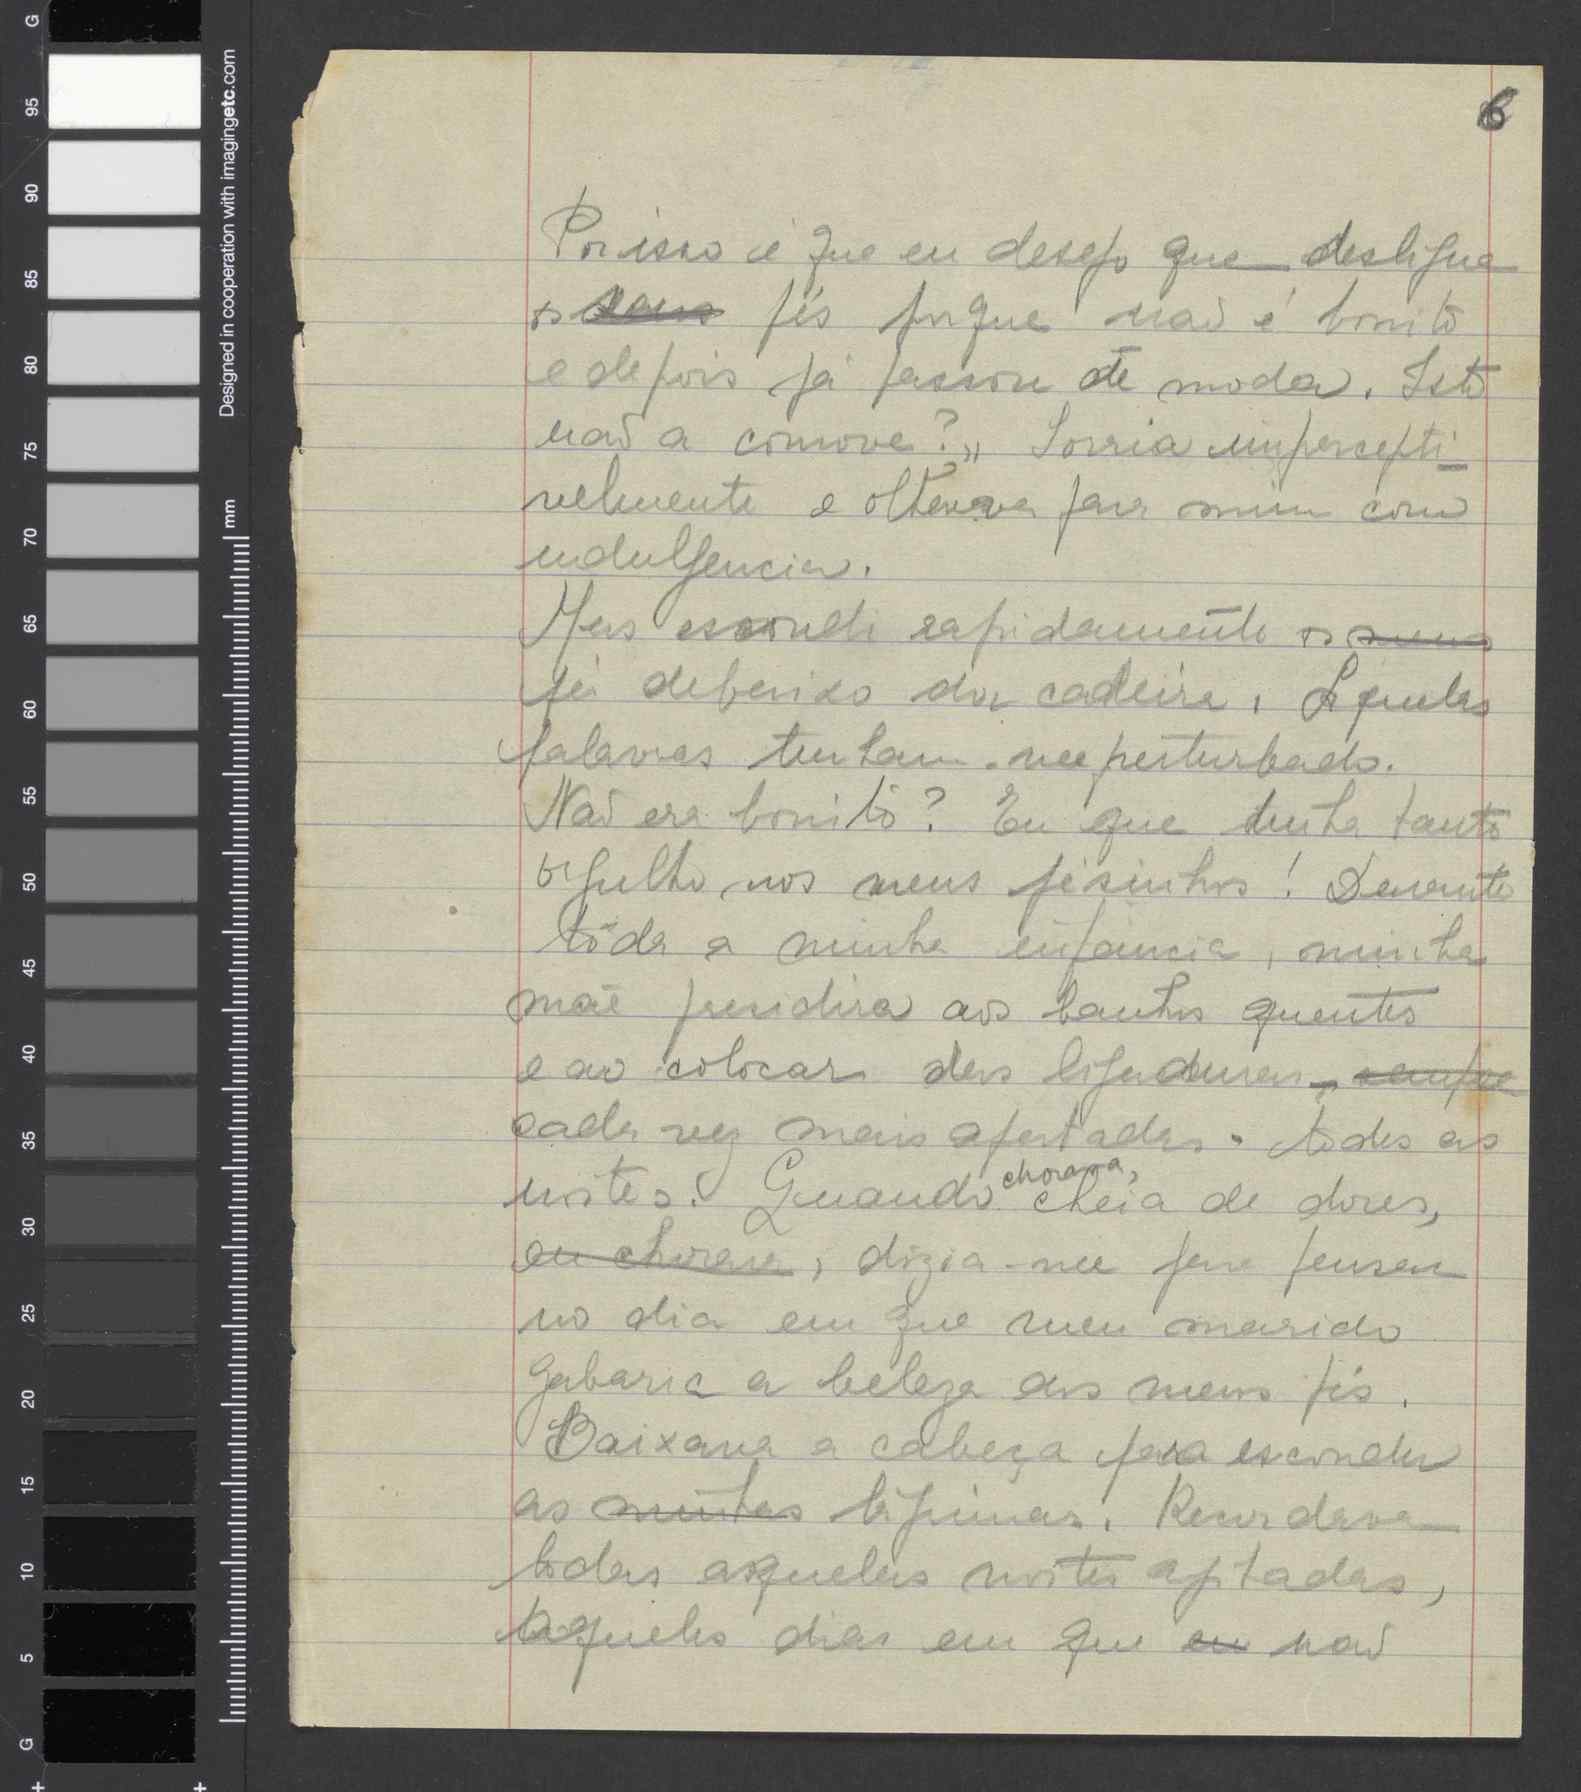 6
Por isso é que eu desejo que desligue
os seus pés porque não é bonito
e depois já passou de moda. Isto
não a comove?" Sorria impercepti
velmente e olhava para mim com
indulgencia.
Mas escondi rapidamente os meus
pés debaixo da cadeira. Aquelas
palavras tinham-me perturbado.
Não era bonito? Eu que tinha tanto
orgulho nos meus pésinhos! Durante
tôda a minha infância, minha
mãe presidira aos banhos quentes
e ao colocar das ligaduras, sempre
cada vez mais apertadas. todas as
noites. Quando chorava, cheia de dores,
eu chorava, dizia-me para pensar
no dia em que meu marido
gabaria a beleza dos meus pés.
Baixava a cabeça para esconder
as minhas lágrimas. Recordava
todas aquelas noites agitadas,
aqueles dias em que eu não
G
95
90
85
80
75
70
65
60
55
50
45
40
35
30
25
20
15
10
5
G
mm
Designed in cooperation with imagingetc.com